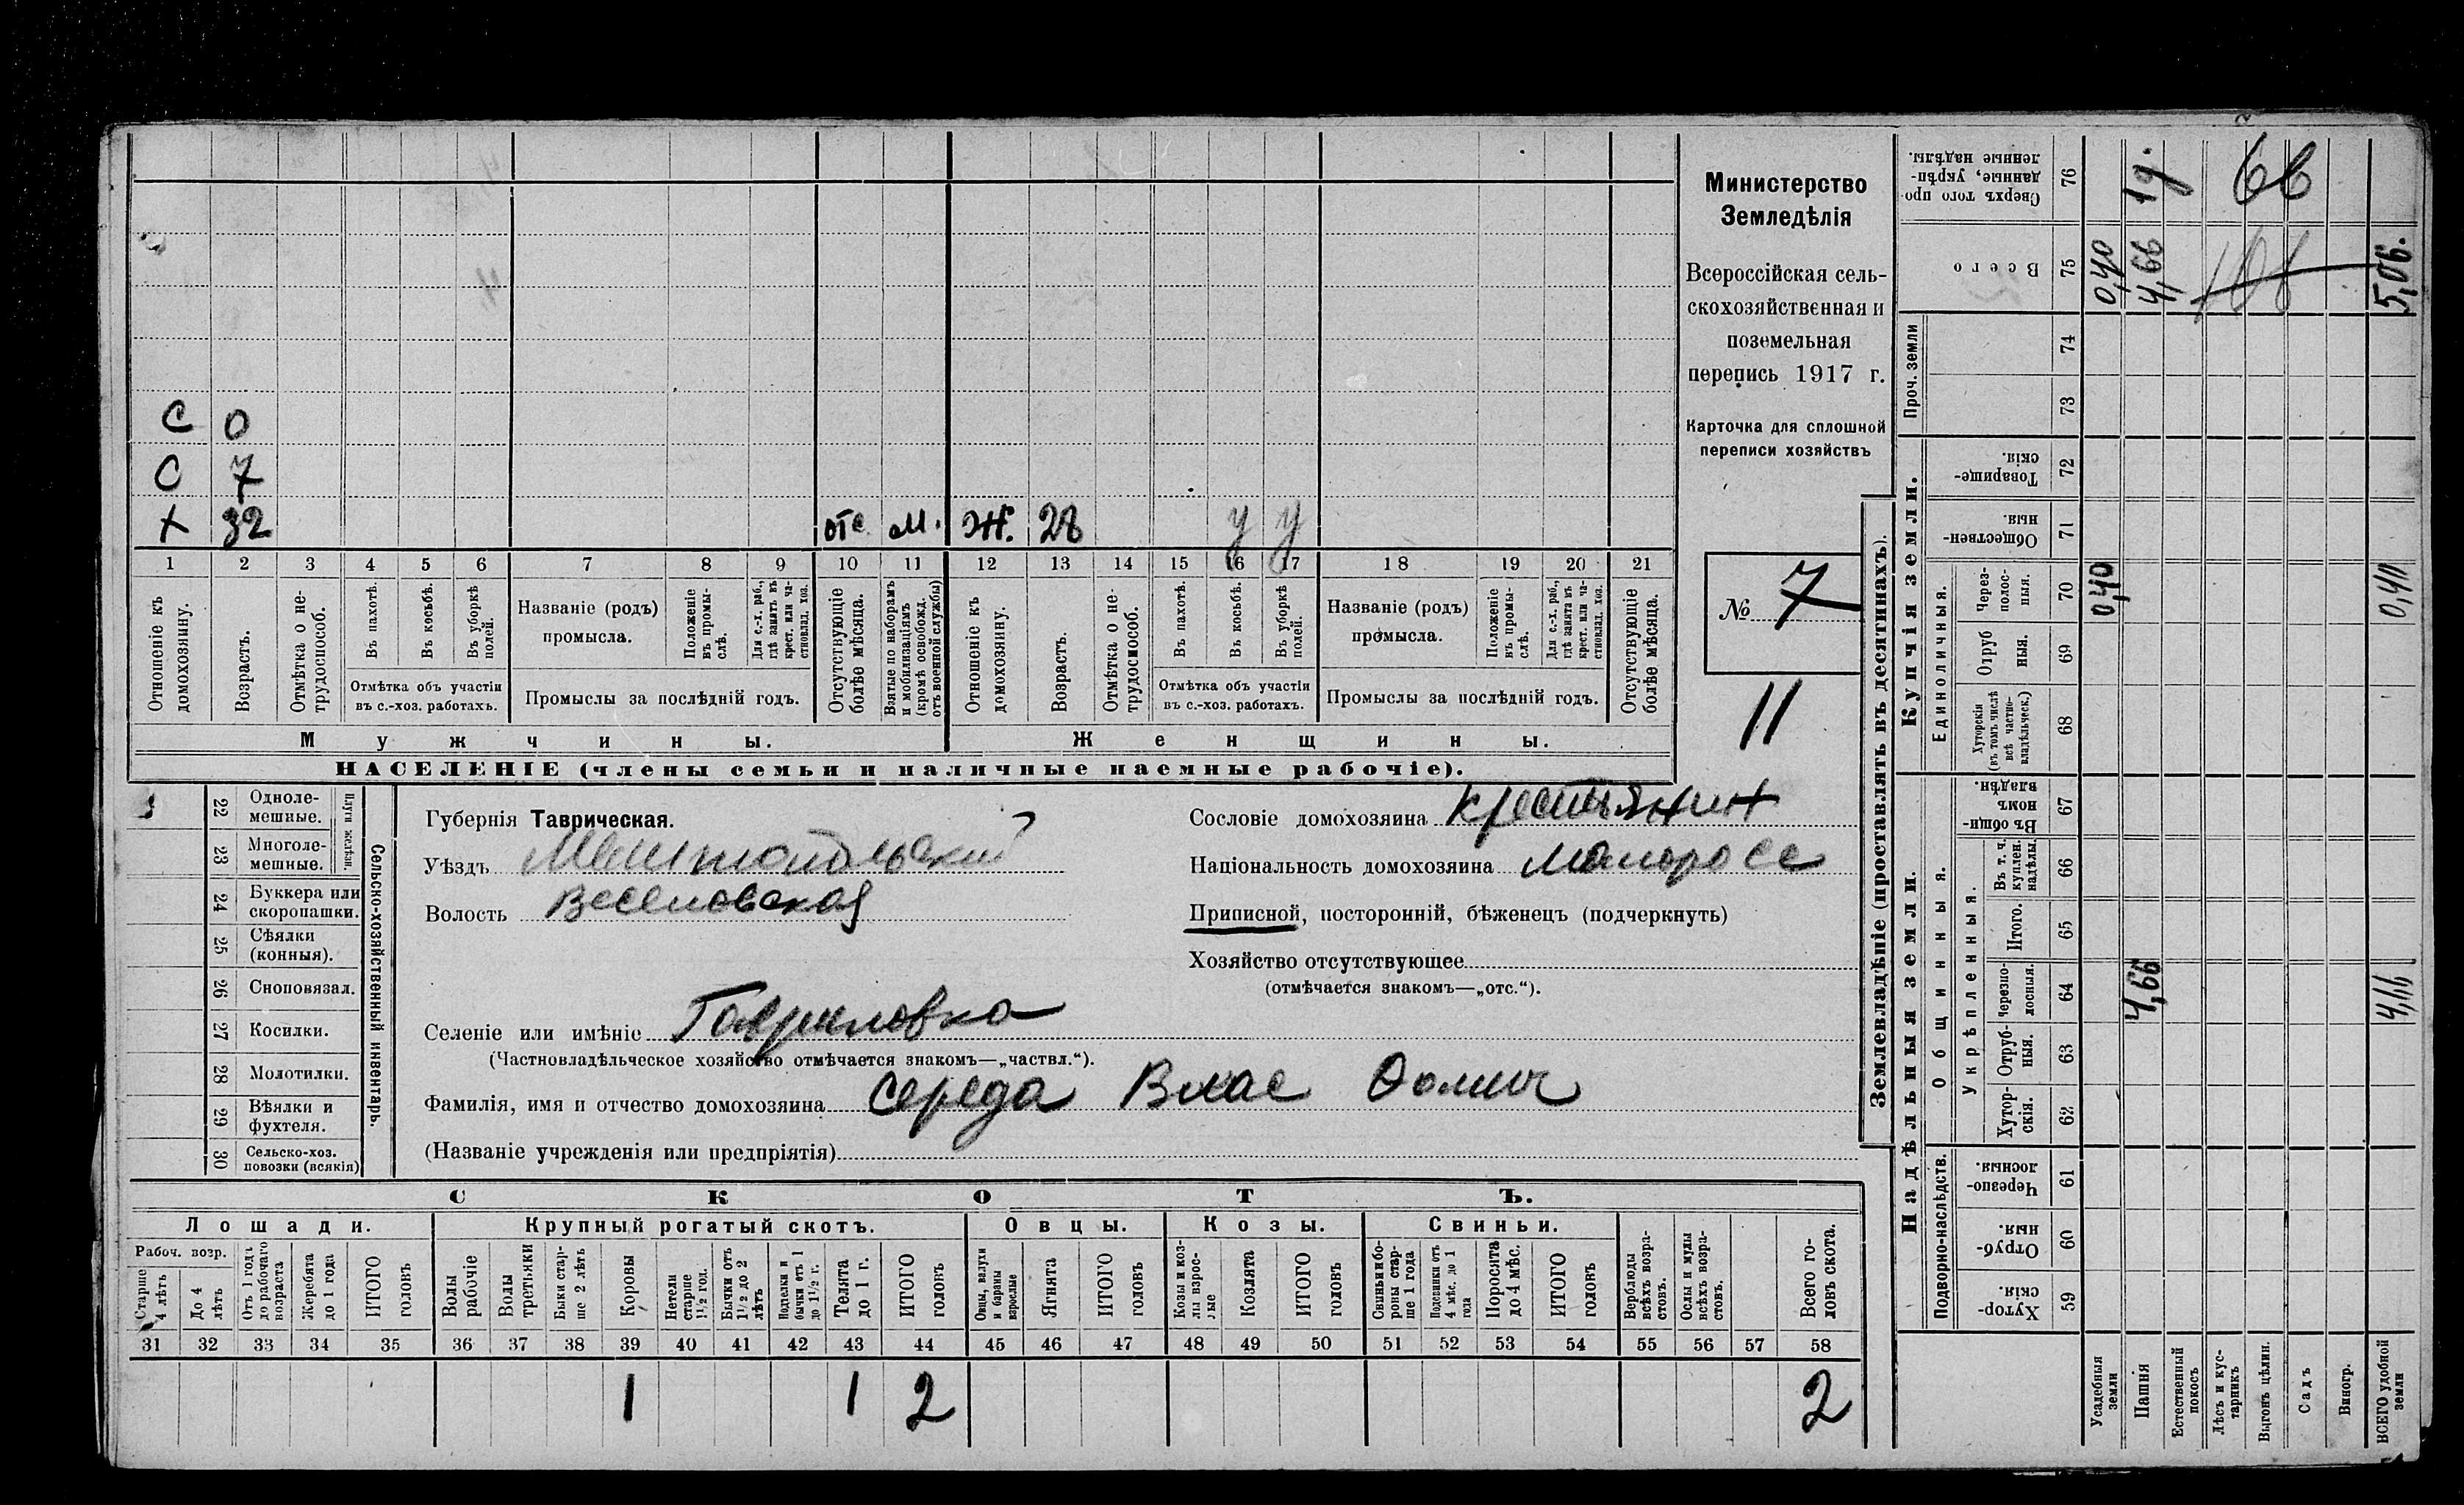 С 0
С 7
х 32 отс. м. Ж. 28 у у
1 2 3 4 5 6 7 8 9 10 11 12 13 14 15 16 17 18 19 20 21
Отношеніе къ домохозяину.
Возрастъ.
Отмѣтка о не-трудоспособ.
Въ пахотѣ.
Въ косьбѣ.
Въ уборкѣ полей.
Отмѣтка объ участіи
въ с.-хоз. работахъ.
Названіе (родъ)
промысла.
Положеніе въ промы-слѣ.
Для с.-х. раб., гдѣ занятъ въ крест. или ча-стновлад. хоз.
Промыслы за послѣдній годъ.
Отсутствующіе болѣе мѣсяца.
Взятые по наборамъ и мобилизаціямъ (кромѣ освобожд. отъ военной службы)
Отношеніе къ домохозяину.
Возрастъ.
Отмѣтка о не-трудоспособ.
Въ пахотѣ.
Въ косьбѣ.
Въ уборкѣ полей.
Отмѣтка объ участіи
въ с.-хоз. работахъ.
Названіе (родъ)
промысла.
Положеніе въ промы-слѣ.
Для с.-х. раб., гдѣ занята въ крест. или ча-стновлад. хоз.
Промыслы за послѣдній годъ.
Отсутствующіе болѣе мѣсяца.
Мужчины. Женщины.
НАСЕЛЕНІЕ (члены семьи и наличные наемные рабочіе).
Министерство
Земледѣлія
Всероссійская сель-
скохозяйственная и
поземельная
перепись 1917 г.
Карточка для сплошной
переписи хозяйствъ
№ 7
11
Сельско-хозяйственный инвентарь.
Плуги желѣзн.
22 Одноле-мешные.
23 Многоле-мешные.
24 Буккера или скоропашки.
25 Сѣялки (конныя).
26 Сноповязал.
27 Косилки.
28 Молотилки.
29 Вѣялки и фухтеля.
30 Сельско-хоз. повозки (всякія)
Губернія Таврическая.
Уѣздъ Мелитопольский
Волость Веселовская
Селеніе или имѣніе Гавриловка
(Частновладѣльческое хозяйство отмѣчается знакомъ—„частвл.“).
Фамилія, имя и отчество домохозяина Середа Влас Фомич
(Названіе учрежденія или предпріятія)
Сословіе домохозяина крестьянин
Національность домохозяина малоросс
Приписной, посторонній, бѣженецъ (подчеркнуть)
Хозяйство отсутствующее
(отмѣчается знакомъ—„отс.“).
СКОТЪ.
Лошади. Крупный рогатый скотъ. Овцы. Козы. Свиньи.
Рабоч. возр.
Старше 4 лѣтъ
До 4 лѣтъ
Отъ 1 года до рабочаго возраста
Жеребята до 1 года
ИТОГО головъ
Волы рабочіе
Волы третьяки
Быки стар-ше 2 лѣтъ
Коровы
Нетели старше 1½ год.
Бычки отъ 1½ до 2 лѣтъ
Подтелки и бычки отъ 1 до 1½ г.
Телята до 1 г.
ИТОГО головъ
Овцы, валухи и бараны взрослые
Ягнята
ИТОГО головъ
Козы и коз-лы взрос-лые
Козлята
ИТОГО головъ
Свиньи и бо-роны стар-ше 1 года
Подсвинки отъ 4 мѣс. до 1 года
Поросята до 4 мѣс.
ИТОГО головъ
Верблюды всѣхъ возра-стовъ.
Ослы и мулы всѣхъ возра-стовъ.
Всего го-ловъ скота.
31 32 33 34 35 36 37 38 39 40 41 42 43 44 45 46 47 48 49 50 51 52 53 54 55 56 57 58
1 1 2 2
Землевладѣніе (проставлять въ десятинахъ).
Надѣльныя земли. Купчія земли. Проч. земли
Подворно-наслѣдств. Общинныя. Укрѣпленныя. Единоличныя.
59 Хутор-скія.
60 Отруб-ныя.
61 Черезпо-лосныя.
62 Хутор-скія.
63 Отруб-ныя.
64 Черезпо-лосныя. 4,66
65 Итого.
66 Въ т. ч. куплен. надѣлы.
67 Въ общин-номъ владѣн.
68 Хуторскія (въ томъ числѣ всѣ частно-владѣльческ.)
69 Отрубныя.
70 Через-полос-ныя. 0,40 0,40
71 Обществен-ныя.
72 Товарище-скія.
73
74
75 Всего 0,40 4,66 5,06.
76 Сверхъ того про-данные, укрѣп-ленные надѣлы. 1д. 6в
Усадебныя земли
Пашня
Естественный покосъ
Лѣсъ и кус-тарникъ
Выгонъ цѣлин.
Садъ
Виногр.
ВСЕГО удобной земли